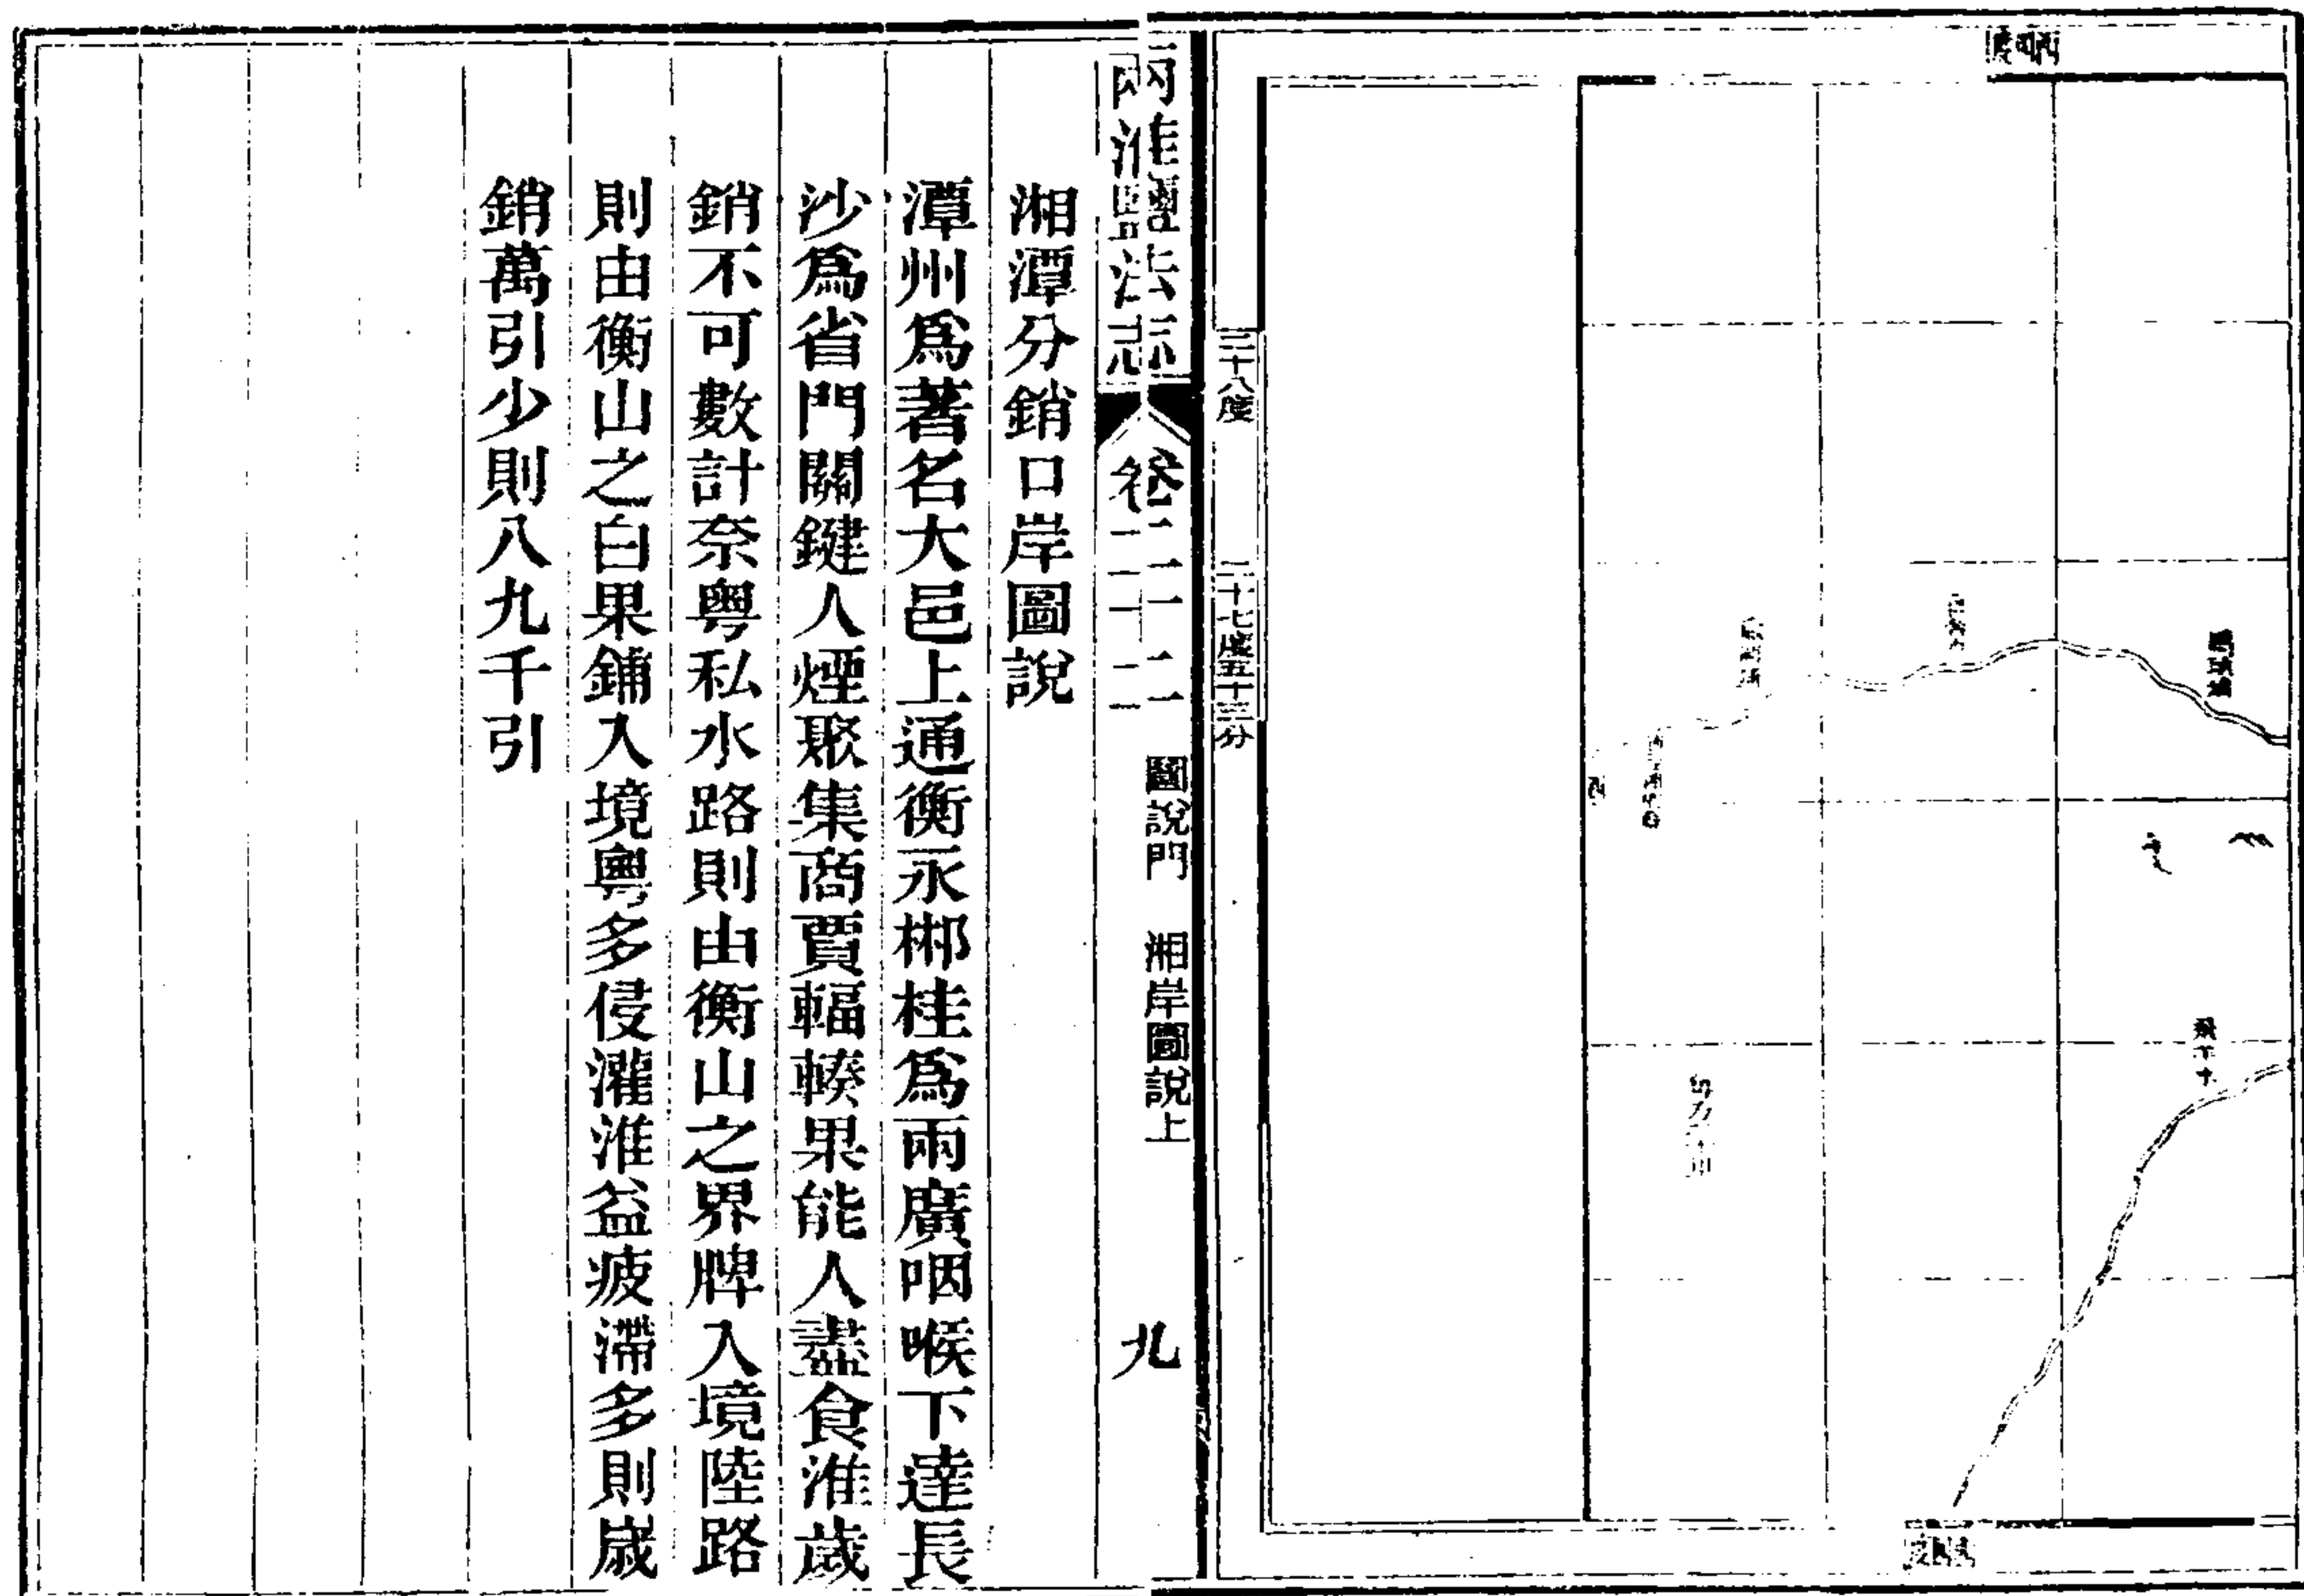 三十八度
二十七度五十三分
兩淮鹽法志
卷二十二
圖說門 湘岸圖說上
九
湘潭分銷口岸圖說
潭州爲著名大邑上通衡永郴桂爲兩廣咽喉下達長
沙爲省門關鍵人煙聚集商賈輻輳果能人盡食淮歲
銷不可數計奈粵私水路則由衡山之界牌入境陸路
則由衡山之白果鋪入境粵多侵灌淮益疲滯多則歲
銷萬引少則八九千引